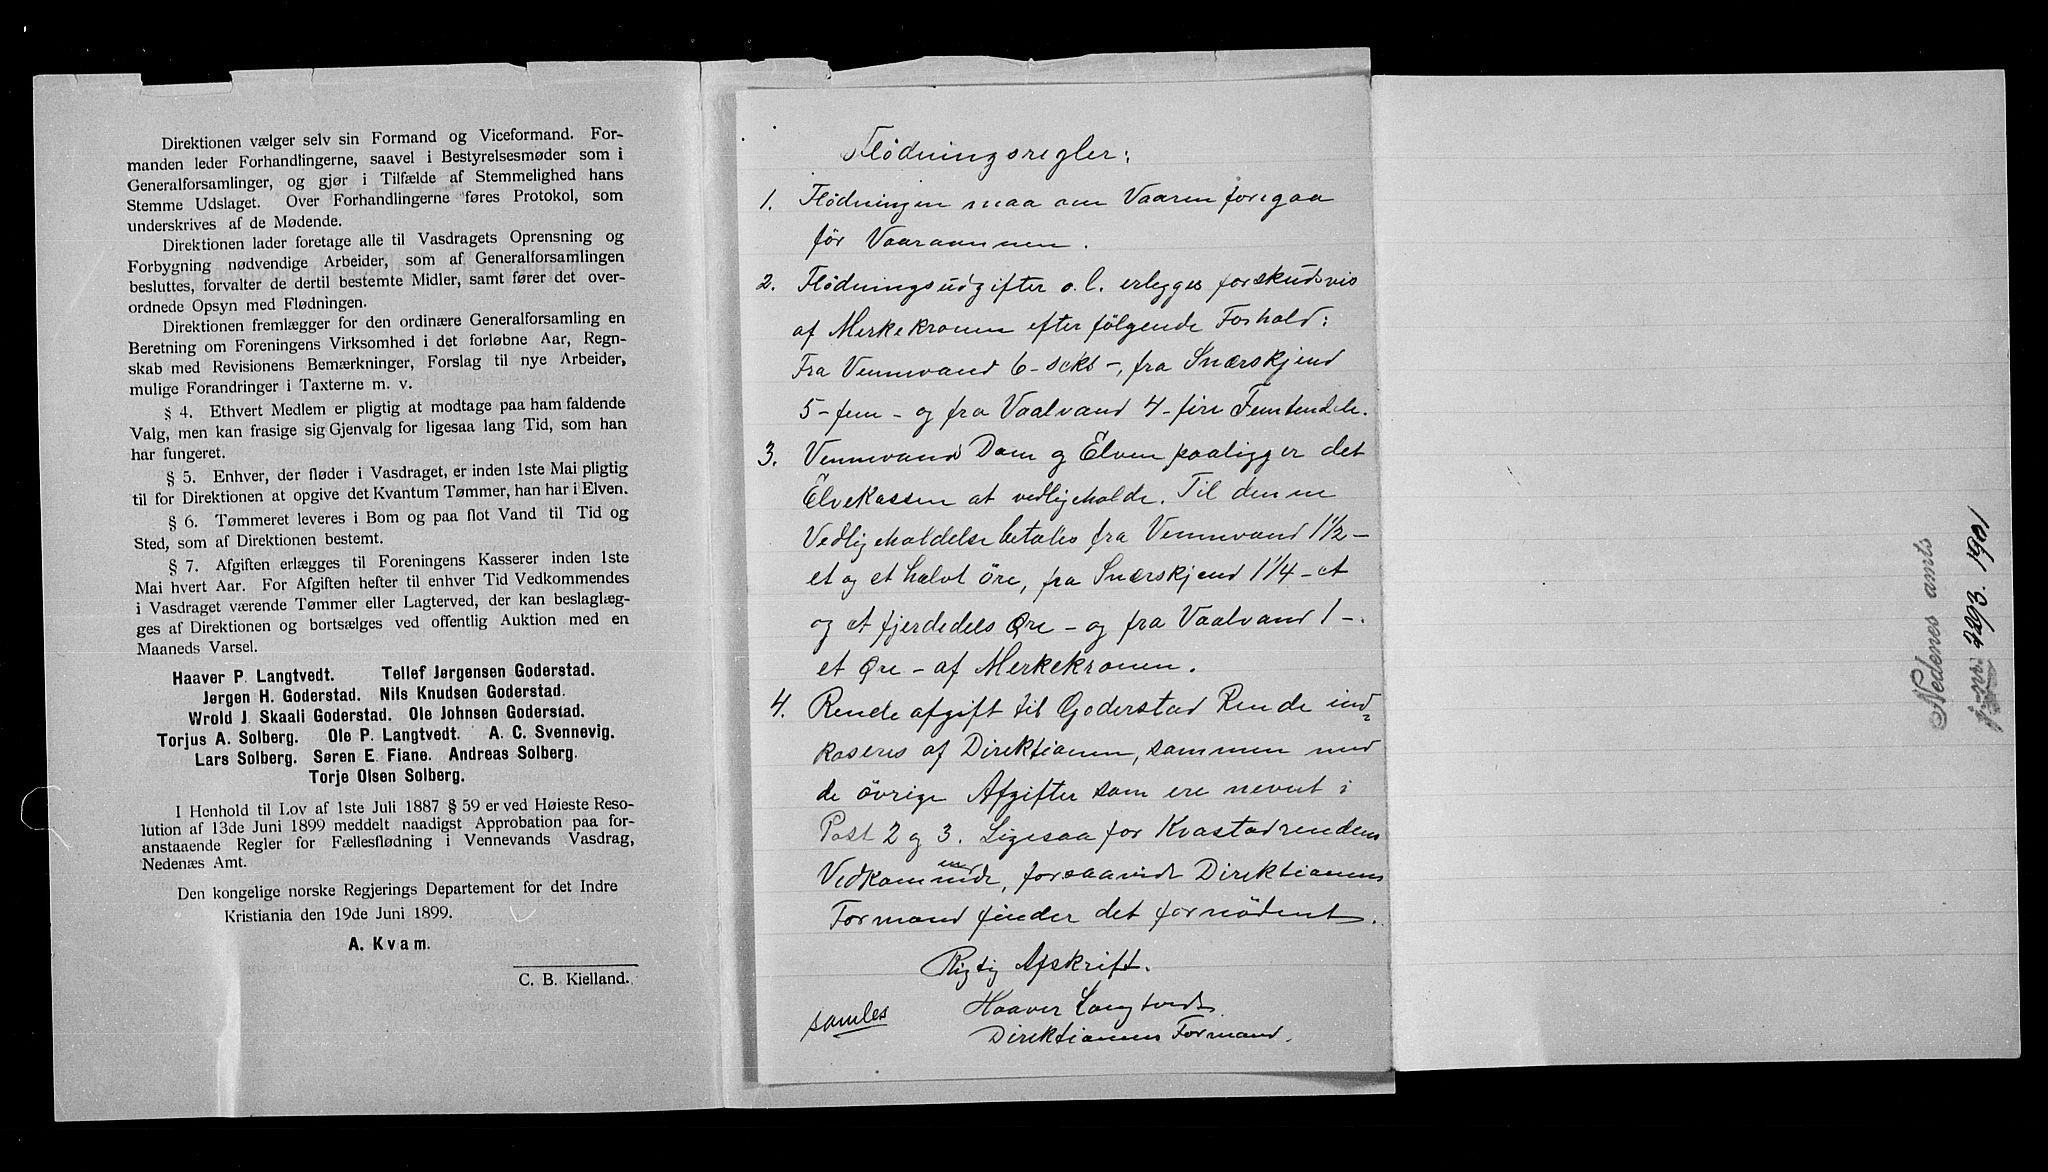 Direktionen vælger selv sin Formand og Viceformand. For-
manden leder Forhandlingerne, saavel i Bestyrelsesmøder som i
Generalforsamlinger, og gjør i Tilfælde af Stemmelighed hans
Stemme Udslaget. Over Forhandlingerne føres Protokol, som
underskrives af de Mødende.
Direktionen lader foretage alle til Vasdragets Oprensning og
Forbygning nødvendige Arbeider, som af Generalforsamlingen
besluttes, forvalter de dertil bestemte Midler, samt fører det over-
ordnede Opsyn med Flødningen.
Direktionen fremlægger for den ordinære Generalforsamling en
Beretning om Foreningens Virksomhed i det forløbne Aar, Regn-
skab med Revisionens Bemærkninger, Forslag til nye Arbeider,
mulige Forandringer i Taxterne m. v.
§ 4. Ethvert Medlem er pligtig at modtage paa ham faldende
Valg, men kan frasige sig Gjenvalg for ligesaa lang Tid, som han
har fungeret.
§ 5. Enhver, der fløder i Vasdraget, er inden 1ste Mai pligtig
til for Direktionen at opgive det Kvantum Tømmer, han har i Elven.
§ 6. Tømmeret leveres i Bom og paa flot Vand til Tid og
Sted, som af Direktionen bestemt.
§ 7. Afgiften erlægges til Foreningens Kasserer inden 1ste
Mai hvert Aar. For Afgiften hefter til enhver Tid Vedkommendes
i Vasdraget værende Tømmer eller Lagterved, der kan beslaglæg-
ges af Direktionen og bortsælges ved offentlig Auktion med en
Maaneds Varsel.
Haaver P. Langtvedt. Tellef Jørgensen Goderstad.
Jørgen H. Goderstad. Nils Knudsen Goderstad.
Wrold J. Skaali Goderstad. Ole Johnsen Goderstad.
Torjus A. Solberg. Ole P. Langtvedt. A. C. Svennevig.
Lars Solberg. Søren E. Fiane. Andreas Solberg.
Torje Olsen Solberg.
I Henhold til Lov af 1ste Juli 1887 § 59 er ved Høieste Reso-
lution af 13de Juni 1899 meddelt naadigst Approbation paa for-
anstaaende Regler for Fællesflødning i Vennevands Vasdrag,
Nedenæs Amt.
Den kongelige norske Regjerings Departement for det Indre
Kristiania den 19de Juni 1899.
A. Kvam.
C. B. Kielland.
Flödningsregler:
1. Flödningen maa om Vaaren foregaa
för Vaaraannen.
2. Flödningsudgifter o. l. erlegges forskudsvis
af Merkekronen efter fölgende Forhold:
Fra Vennvand 6-seks-, fra Snærskjend
5-fem- og fra Vaalvand 4-fire Femtendele.
3. Vennvand Dam og Elven paaligger det
Elvekassen at vedligeholde. Til denne
Vedligeholdelse betales fra Vennvand 1½-
et og et halvt öre, fra Snærskjend 1¼-et
og et fjerdedels Øre- og fra Vaalvand 1-.
et Øre- af Merkekronen.
4. Rendeafgift til Goderstad Rende ind-
kaseres af Direktionen, sammen med
de övrige Afgifter som ere nevnt i
Post 2 og 3. Ligesaa for Kvastadrendens
Vedkommende, forsaavidt Direktionens
Formand finder det fornödent.
Rigtig Afskrift.
Haaver Langtvedt
Direktionens Formand.
samles
Nedenes amts
2293. 1901